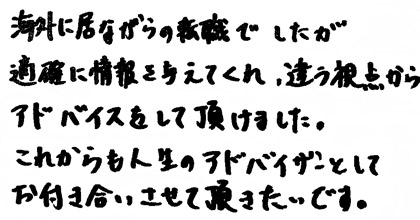 海外に居ながらの転職でしたが
適確に情報を与えてくれ、違う視点から
アドバイスをして頂けました。
これからも人生のアドバイザーとして
お付き合いさせて頂きたいです。